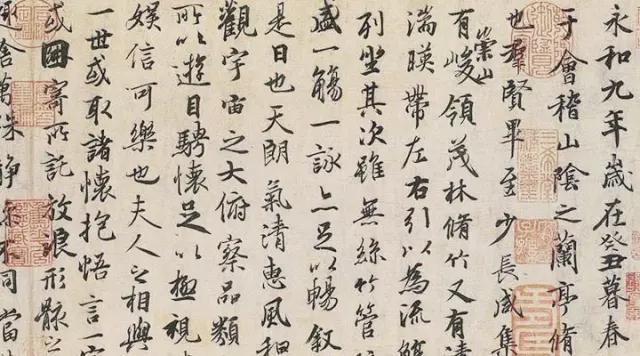 永和九年歲在癸丑暮春
于會稽山陰之蘭亭脩
也羣賢畢至少長咸集
有崇山峻領茂林脩竹又有清
湍暎帶左右引以為流觴
列坐其次雖無絲竹管
盛一觴一詠亦足以暢叙
是日也天朗氣清惠風和
觀宇宙之大俯察品類
所以遊目騁懷足以極視
娛信可樂也夫人之相與
一世或取諸懷抱悟言一室
或因寄所託放浪形骸之
舍萬殊静不同當